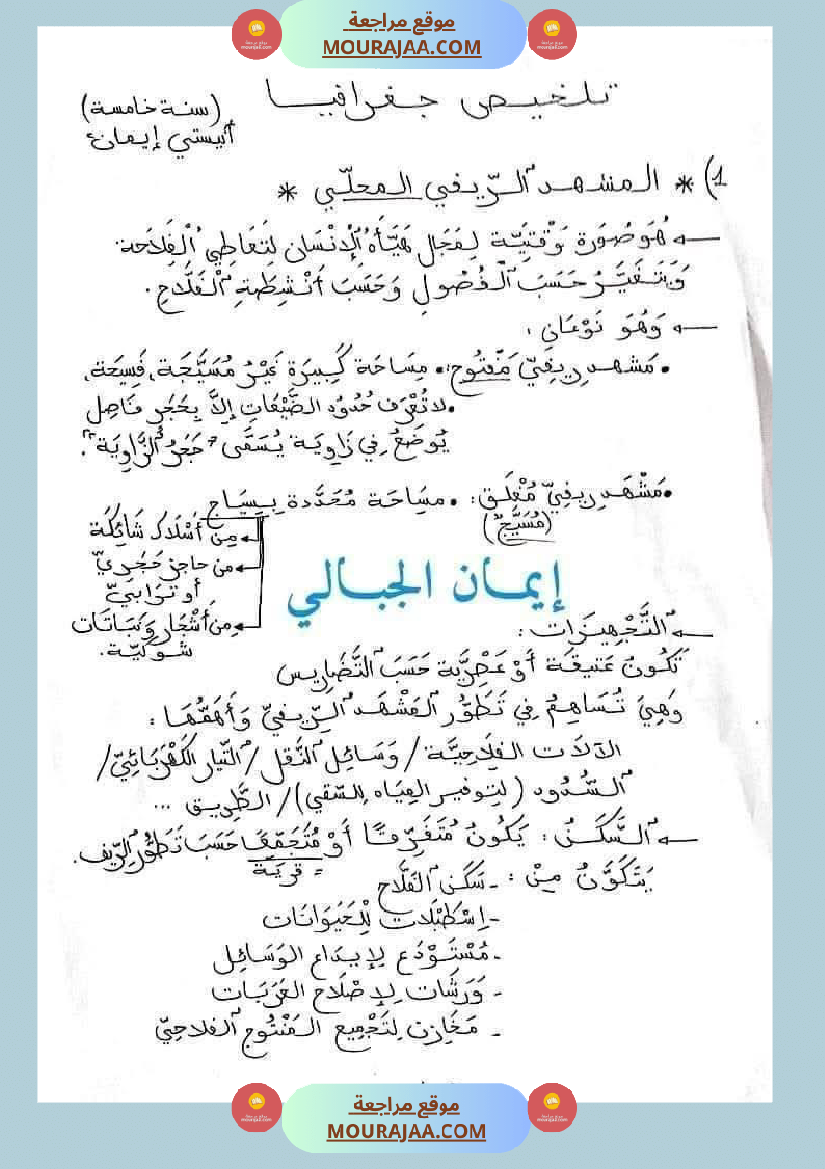 موقع مراجعة
MOURAJAA.COM
تلخيص جغرافيا
(سنة خامسة)
أنيستي إيمان
1) * المشهد الرّيفي المحلّي *
← هُوَ صُورَة وَقْتِيَّة لِمَجَال هَيَّأَهُ الإِنْسَان لِتَعَاطِي الْفِلَاحَة
وَيَتَغَيَّرُ حَسَبَ الْفُصُولِ وَحَسَبَ أَنْشِطَةِ الْفَلَّاحِ.
← وَهُوَ نَوْعَانِ :
• مَشهد رِيفِيّ مَفْتُوح: • مِسَاحَة كَبِيرَة غَيْرُ مُسَيَّجَة، فَسِيحَة،
• لا تُعْرَف حُدُودُ الضَّيْعَاتِ إِلَّا بِحَجَرٍ فَاصِل
يُوضَعُ فِي زَاوِيَة يُسَمَّى "حَجَرُ الزَّاوِيَة".
• مَشْهَد رِيفِيّ مُغْلَق: • مسَاحَة مُحَدَّدة بِسِيَاج
(مُسَيَّج)
مِن أَسْلَاك شَائِكَة
من حاجز حَجَرِيّ
أو تُرَابيّ
مِن أَشْجَار وَنبَاتَات
شوكيّة.
إيمان الجبالي
← التَّجْهِيزَات :
تَكُونُ عَتِيقَة أَوْ عَصْرِيَّة حَسَبَ التَّضَارِيس
وَهِيَ تُسَاهِمُ فِي تَطَوُّر المَشْهَد الرِّيفِيّ وَأَهَمُّهَا :
الآلَات الفِلَاحِيَّة / وَسَائِل النَّقل / التَّيَّار الكَهْرَبَائِيّ /
السُّدُود (لِتَوفِير المِيَاه للسَّقي) / الطَّرِيق ...
← السَّكَنُ : يَكُونُ مُتَفَرِّقًا أَوْ مُتَجَمِّعًا حَسَبَ تَطَوُّر الرِّيف.
= قريَة
يَتَكَوَّنُ مِنْ : - سَكَن الفَلَّاح
- اِسْطَبْلَات لِلْحَيَوَانَات
- مُسْتَوْدَع لِإِيدَاع الوَسَائِل
- وَرَشَات لِإِصْلَاح العَرَبَات
- مَخَازِن لِتَجْمِيع المَنْتُوج الفلاحِيّ
موقع مراجعة
MOURAJAA.COM